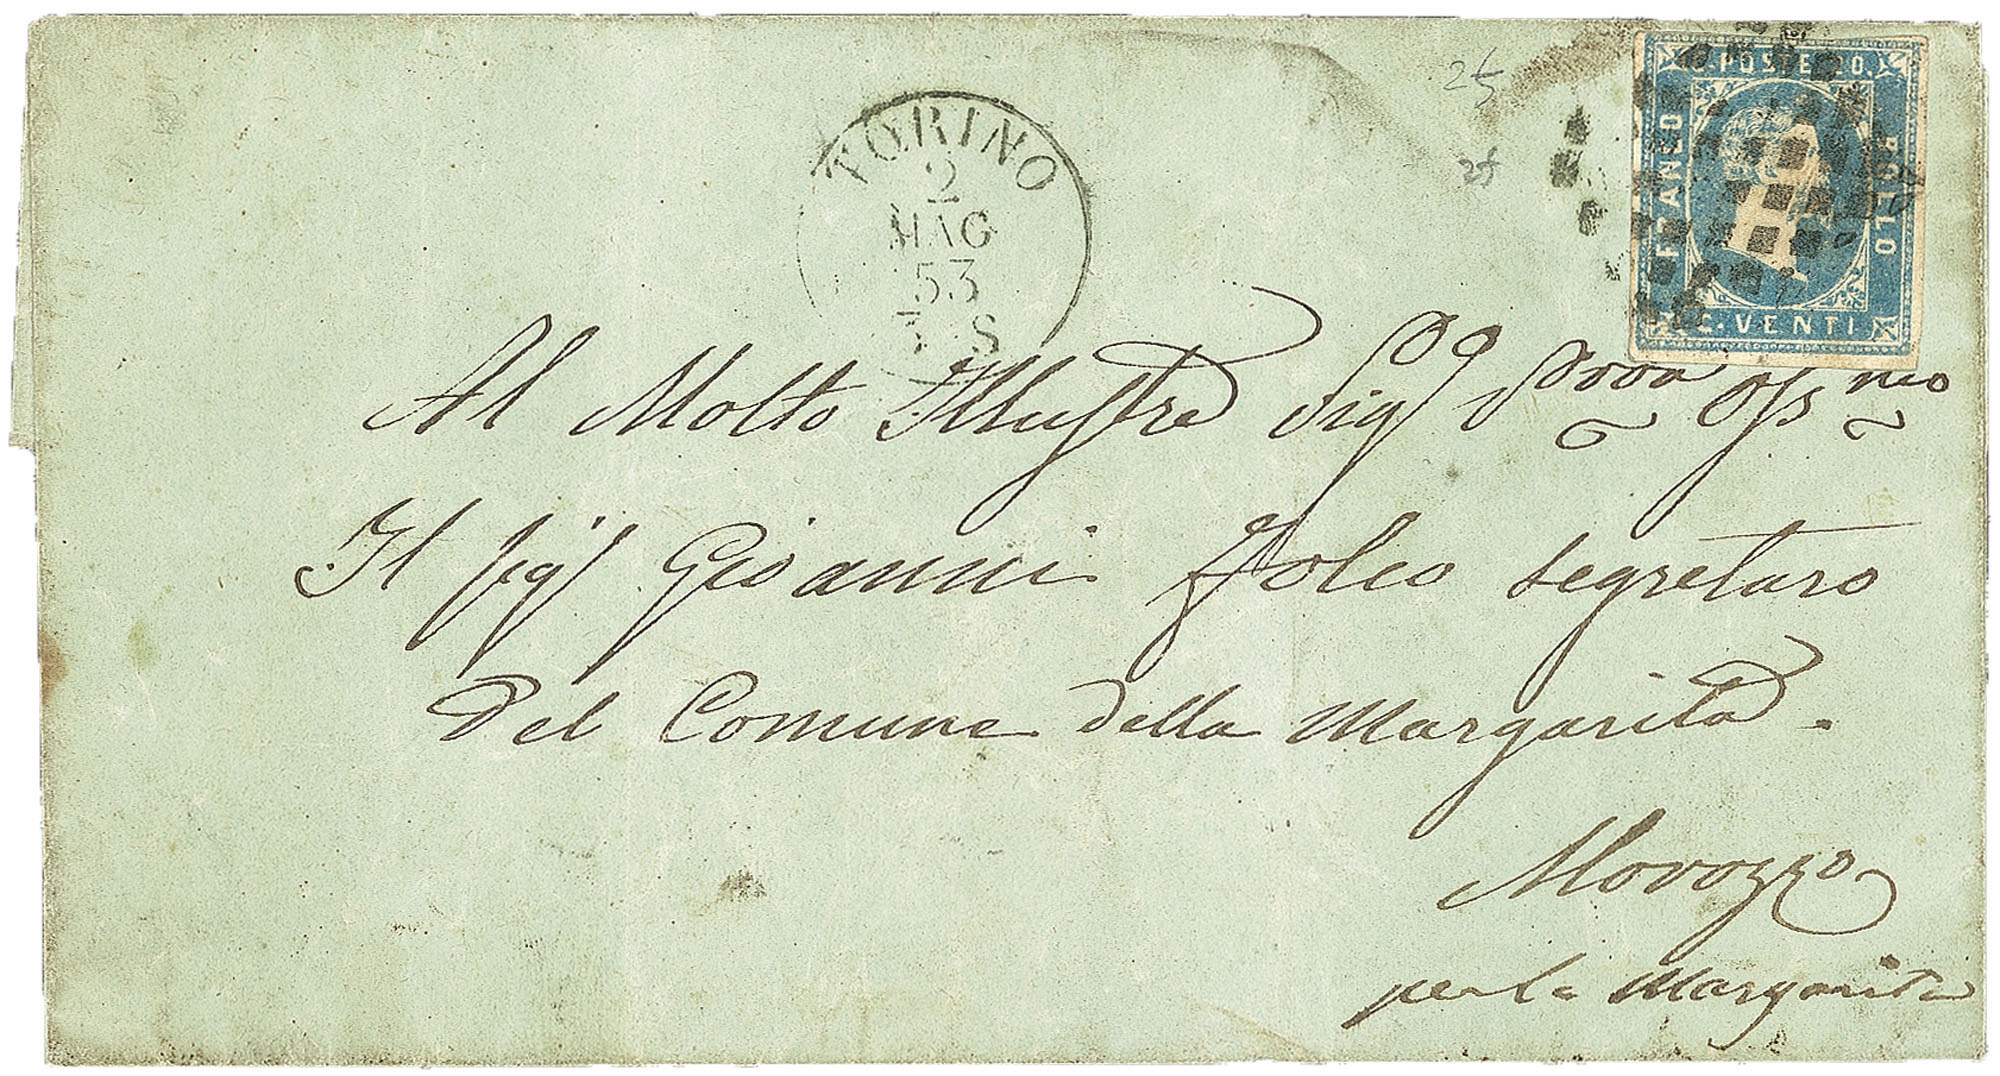 C. POSTE 20.
FRANCO
BOLLO
C. VENTI
TORINO
2
MAG
53
S
25
25
Al Molto Illustre Sig Pron Oss mo
Il Sig Giovanni Folco segretaro
Del Comune della Margarita.
Morozzo
per la Margarita